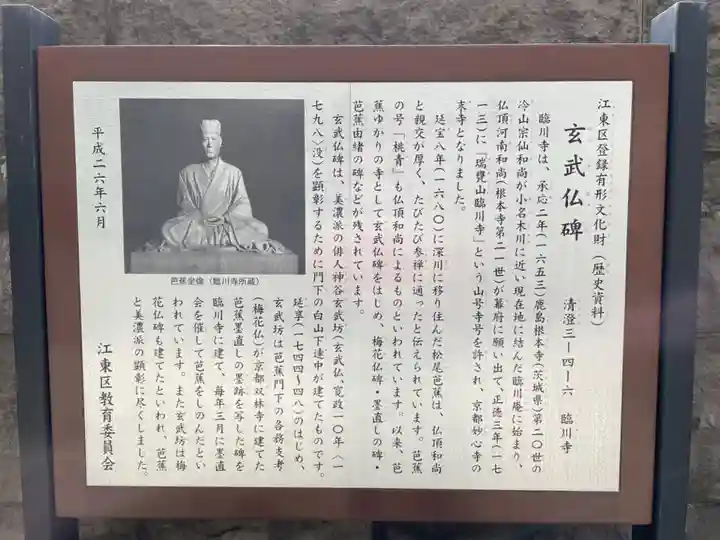 江東区登録有形文化財(歴史資料)
玄武仏碑
清澄三ー四ー六 臨川寺
臨川寺は、承応二年(一六五三)鹿島根本寺(茨城県)第二〇世の
冷山宗仙和尚が小名木川に近い現在地に結んだ臨川庵に始まり、
仏頂河南和尚(根本寺第二一世)が幕府に願い出て、正徳三年(一七
一三)に「瑞甕山臨川寺」という山号寺号を許され、京都妙心寺の
末寺となりました。
延宝八年(一六八〇)に深川に移り住んだ松尾芭蕉は、仏頂和尚
と親交が厚く、たびたび参禅に通ったと伝えられています。芭蕉
の号「桃青」も仏頂和尚によるものといわれています。以来、芭
蕉ゆかりの寺として玄武仏碑をはじめ、梅花仏碑・墨直しの碑・
芭蕉由緒の碑などが残されています。
玄武仏碑は、美濃派の俳人神谷玄武坊(玄武仏、寛政一〇年〈一
七九八〉没)を顕彰するために門下の白山下連中が建てたものです。
延享(一七四四~四八)のはじめ、
玄武坊は芭蕉門下の各務支考
(梅花仏)が京都双林寺に建てた
芭蕉墨直しの墨跡を写した碑を
臨川寺に建て、毎年三月に墨直
会を催して芭蕉をしのんだとい
われています。また玄武坊は梅
花仏碑も建てたといわれ、芭蕉
と美濃派の顕彰に尽くしました。
芭蕉坐像(臨川寺所蔵)
平成二六年六月
江東区教育委員会